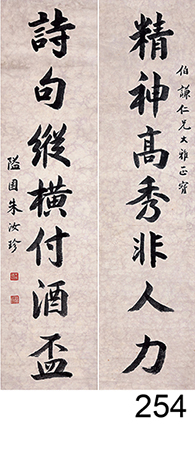 伯謙仁兄大雅正實
精神高秀非人力
詩句縱橫付酒盃
隘園朱汝珍
254